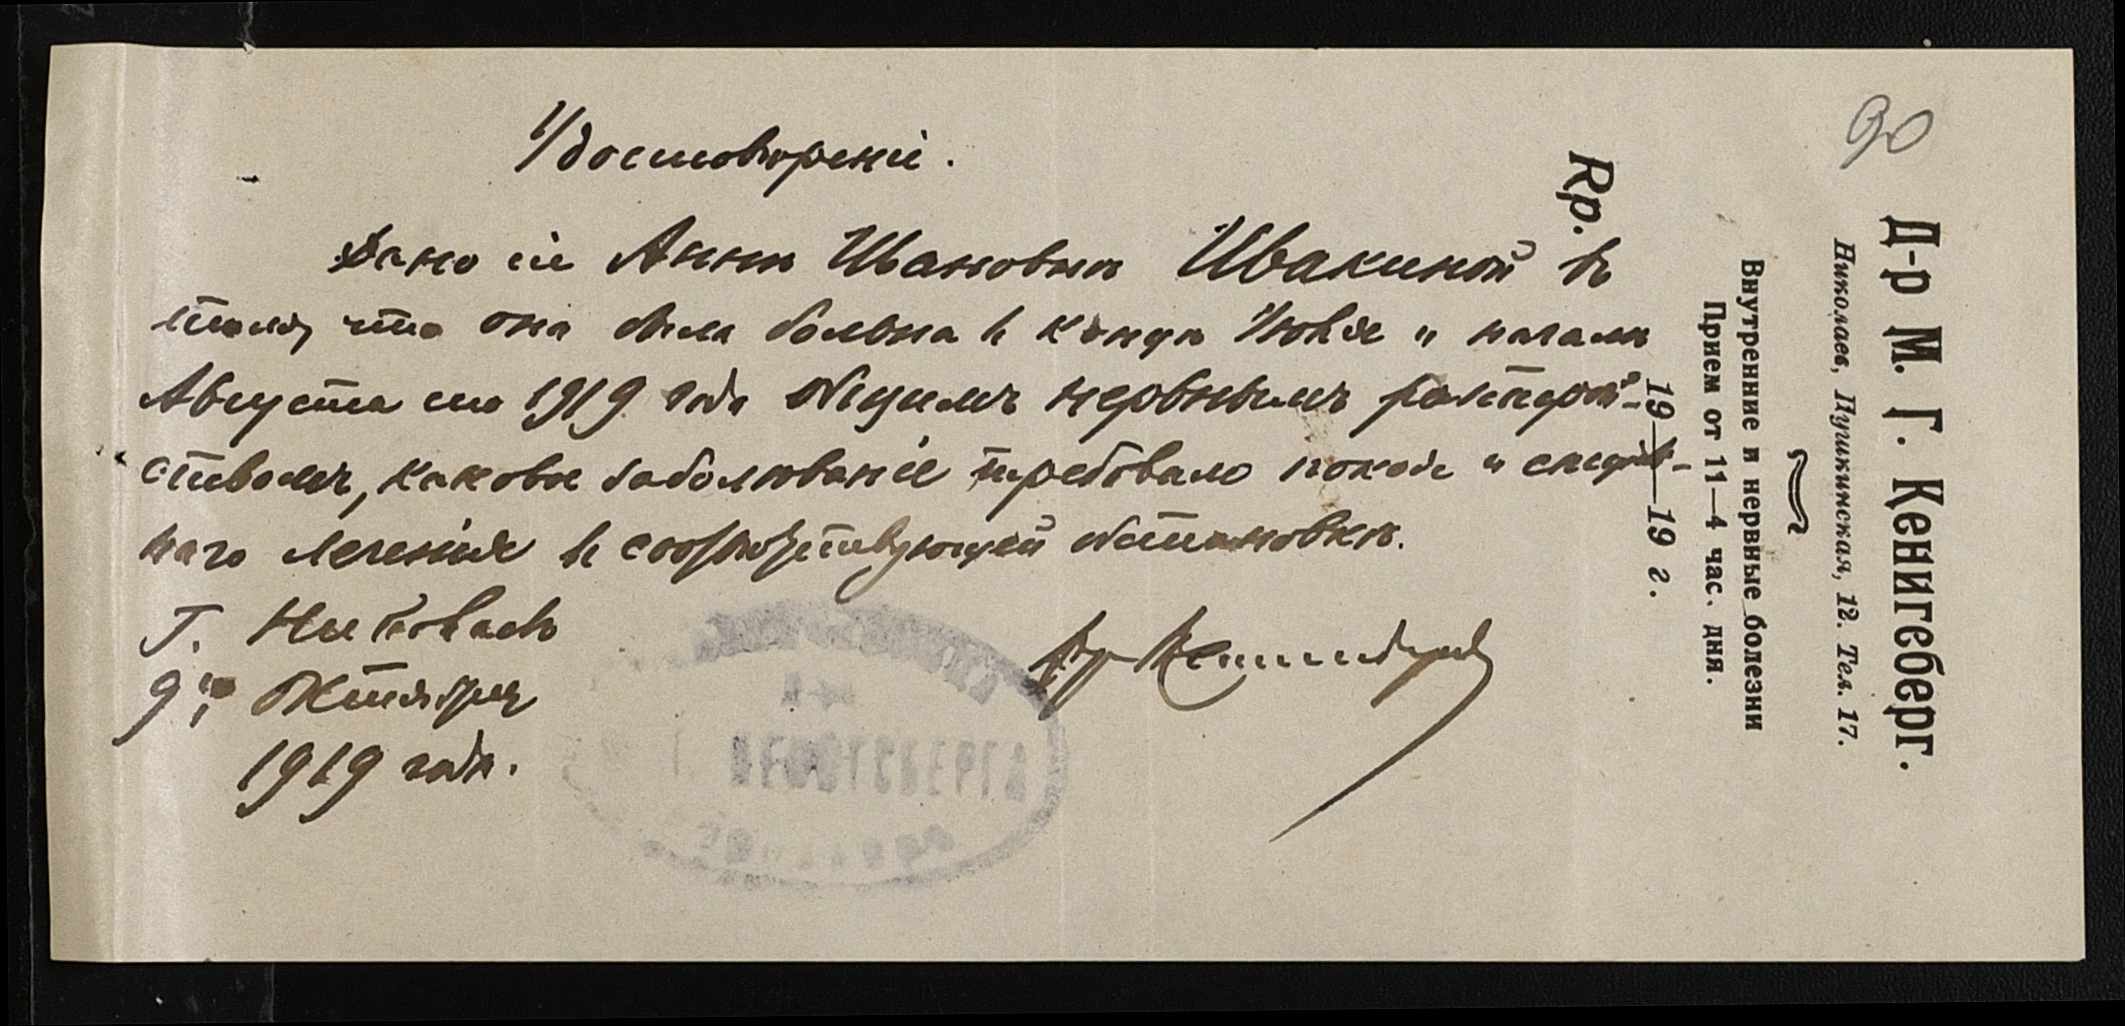 90
Д-р М. Г. Кенигеберг.
Николаев, Пушкинская, 12. Тел. 17.
Внутренние и нервные болезни
Прием от 11—4 час. дня.
19 — 19 г.
Rp.
Удостоверенiе.
Дано сiе Аннѣ Ивановнѣ Ивакиной въ
томъ, что она была больна въ концѣ Iюля и началѣ
Августа сего 1919 года общимъ нервнымъ разстрой-
ствомъ, каковое заболѣванiе требовало покоя и спецiаль-
наго леченiя въ соотвѣтствующей обстановкѣ.
Г. Николаевъ
9го Октября
1919 года.
Др Кенигсберг